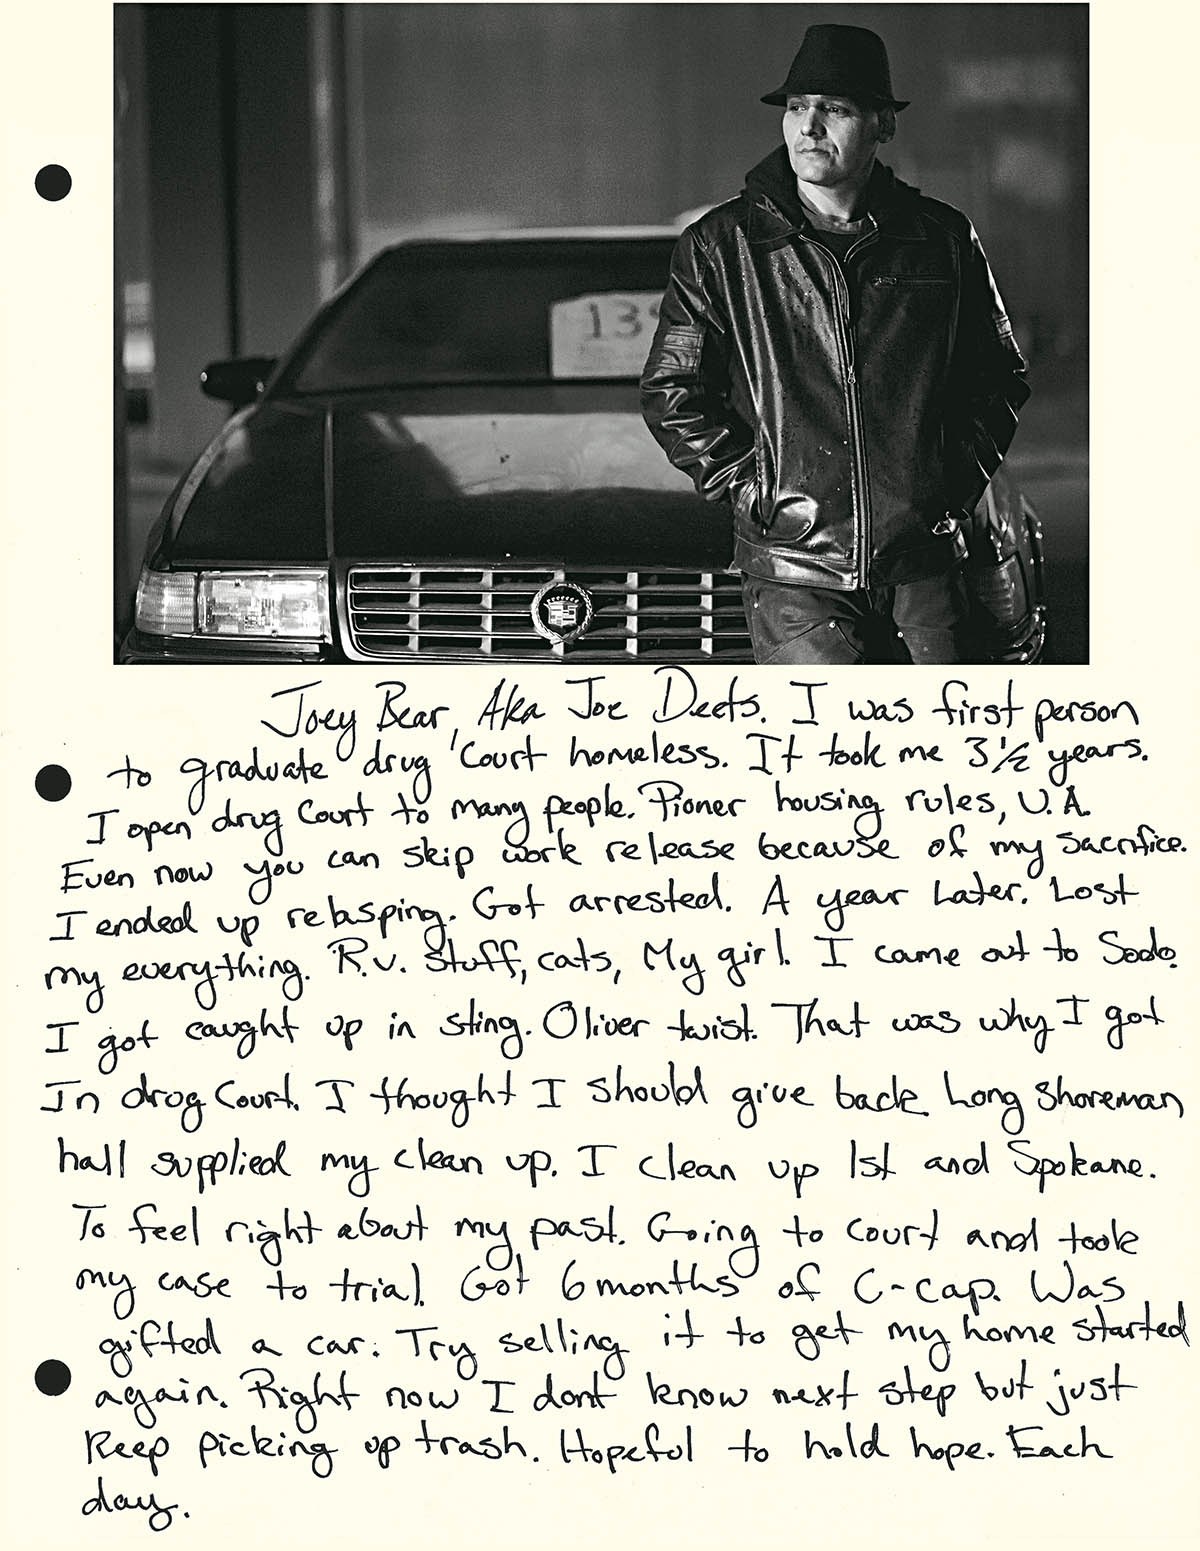 139
Joey Bear, Aka Joe Deets. I was first person
to graduate drug Court homeless. It took me 3½ years.
I open drug Court to many people. Pioner housing rules, U.A.
Even now you can skip work release because of my sacrifice.
I ended up relasping. Got arrested. A year Later. Lost
my everything. R.v. stuff, cats, My girl. I came out to Sodo.
I got caught up in sting. Oliver twist. That was why I got
In drug Court. I thought I should give back. Long Shoreman
hall supplied my clean up. I clean up 1st and Spokane.
To feel right about my past. Going to court and took
my case to trial. Got 6 months of C-cap. Was
gifted a car. Try selling it to get my home started
again. Right now I dont know next step but just
Keep picking up trash. Hopeful to hold hope. Each
day.